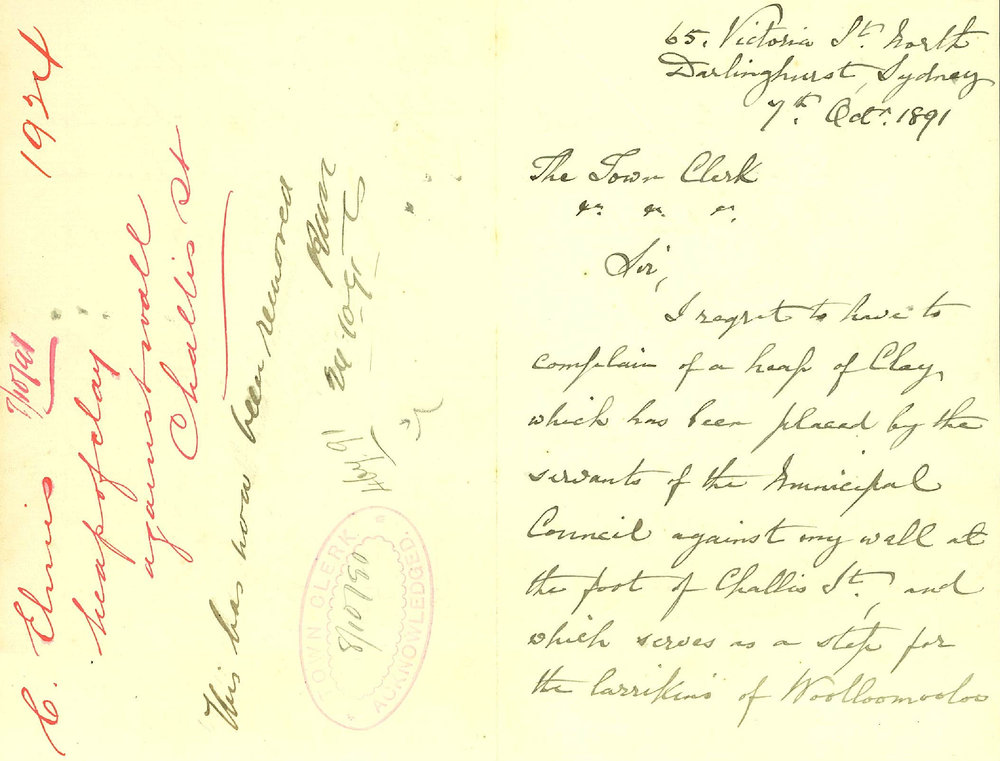 65. Victoria St. North
Darlinghurst, Sydney
7th. Octr. 1891
The Town Clerk
Sir,
I regret to have to
complain of a heap of Clay,
which has been placed by the
servants of the Municipal
Council against my wall at
the foot of Challis St., and
which serves as a step for
the larrikins of Woolloomooloo
1924
7/10/91
heap of clay
against wall
Challis St
This has now been removed
20-10-91
TOWN CLERK
ACKNOWLEDGED.